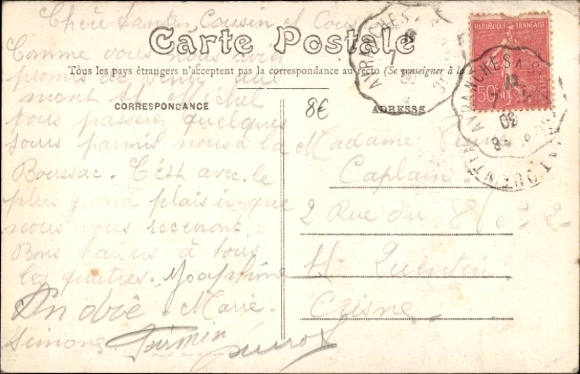 Chère Tante, Cousin et Cous
Carte Postale
Tous les pays étrangers n'acceptent pas la correspondance au recto (Se renseigner à la
CORRESPONDANCE
8€
ADRESSE
Comme vous nous avez
promis de venir au
mont St Michel
vous passerez quelques
jours parmis nous à la
Boussac. C'est avec le
plus grand plaisir que
nous vous recevront.
Bons baisers à tous
les quatres. Josephine
André - Marie -
Simone Firmin
Madame
Caplain
2 Rue du 8
St Quentin
Aisne
REPUBLIQUE FRANÇAISE
50
AVRANCHES
AVRANCHES A
30